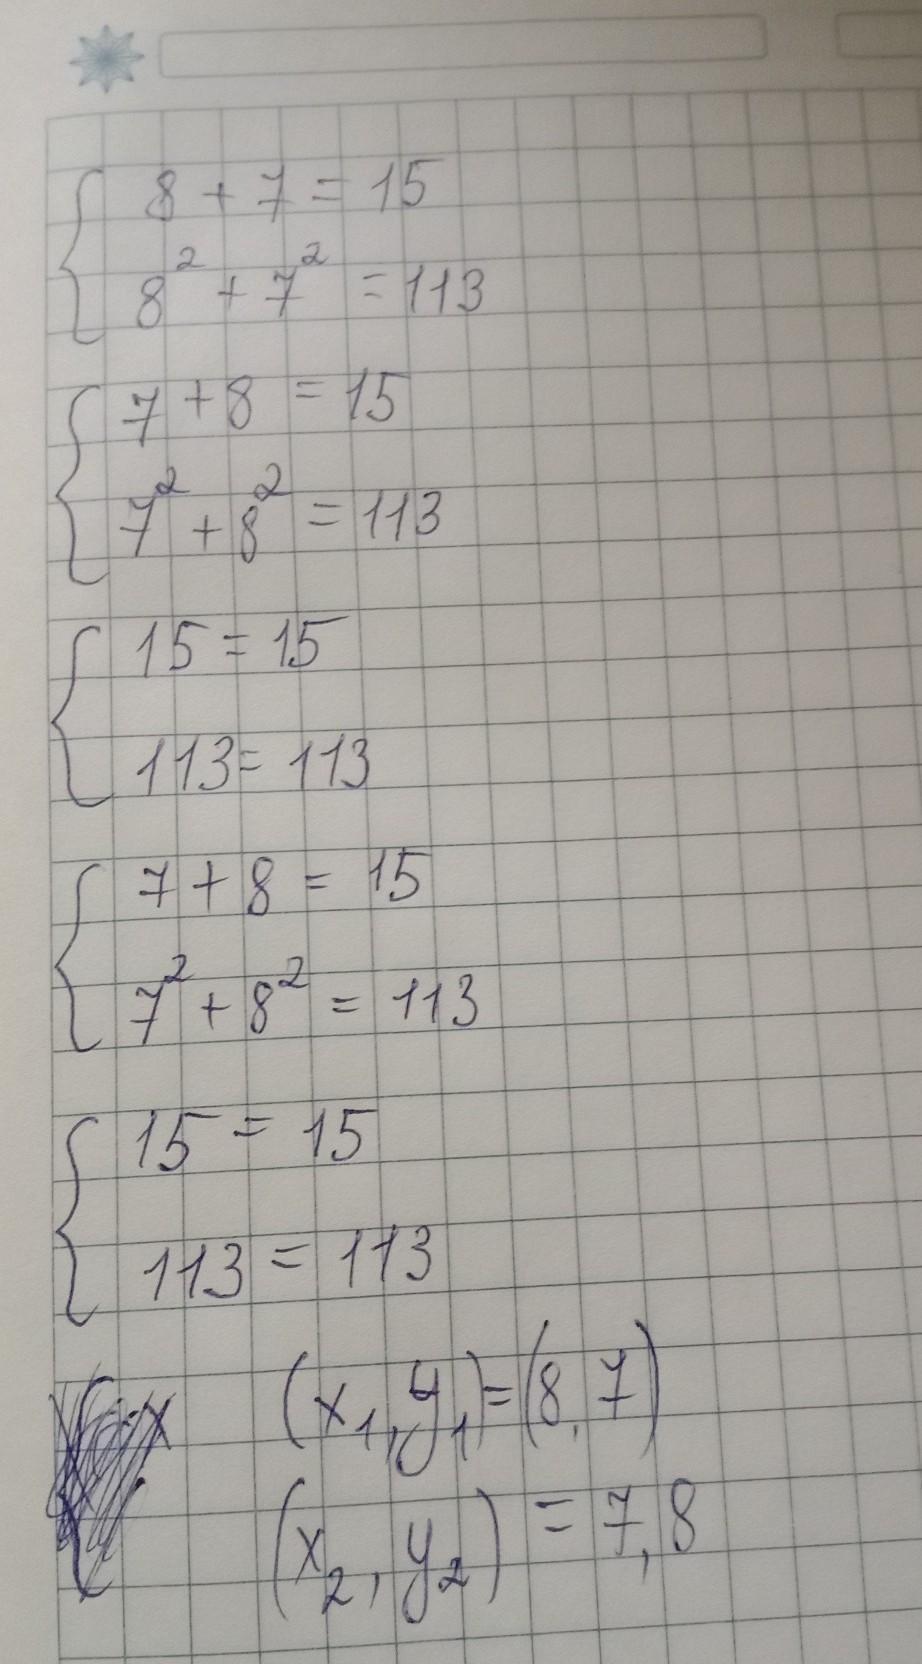 8 + 7 = 15
8² + 7² = 113
7 + 8 = 15
7² + 8² = 113
15 = 15
113 = 113
7 + 8 = 15
7² + 8² = 113
15 = 15
113 = 113
(x₁, y₁) = (8, 7)
(x₂, y₂) = 7, 8